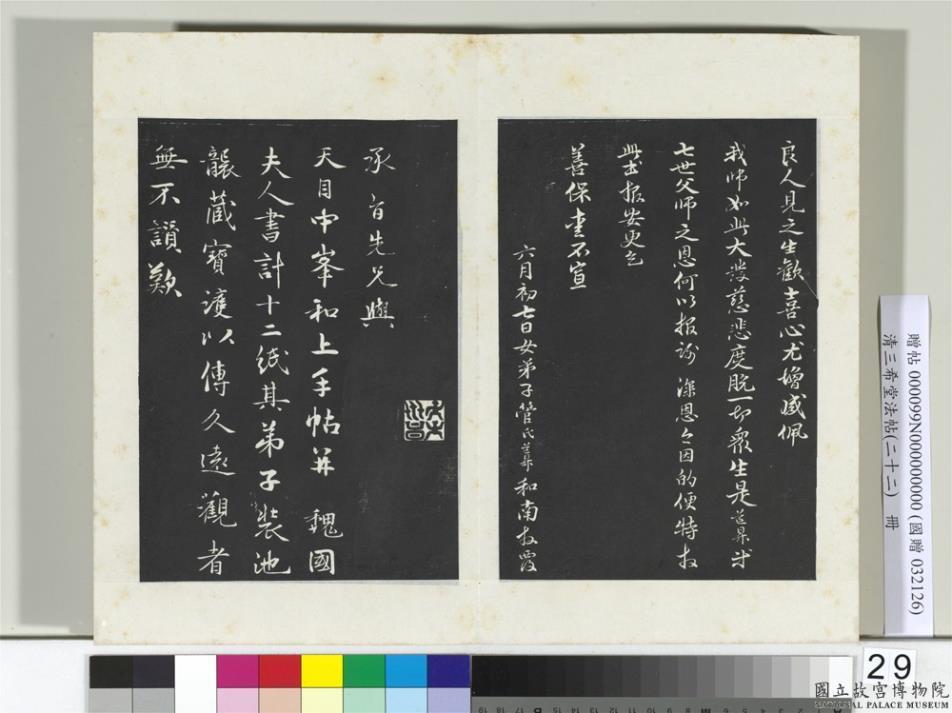 良人見之生歡喜心尤增感佩
我師如此大發慈悲度脫一切眾生是道昇生
七世父師之恩何以報謝 深恩今因的便特於
此書報安更乞
善保重不宣
六月初七日女弟子管氏道昇和南拜覆
承旨先兄與
天目中峯和上手帖并 魏國
夫人書計十二紙其弟子裝池
襲藏寶護以傳久遠觀者
無不讃歎
贈帖 000099N000000000 (國贈 032126)
清三希堂法帖(二十二) 冊
29
國立故宮博物院
NATIONAL PALACE MUSEUM